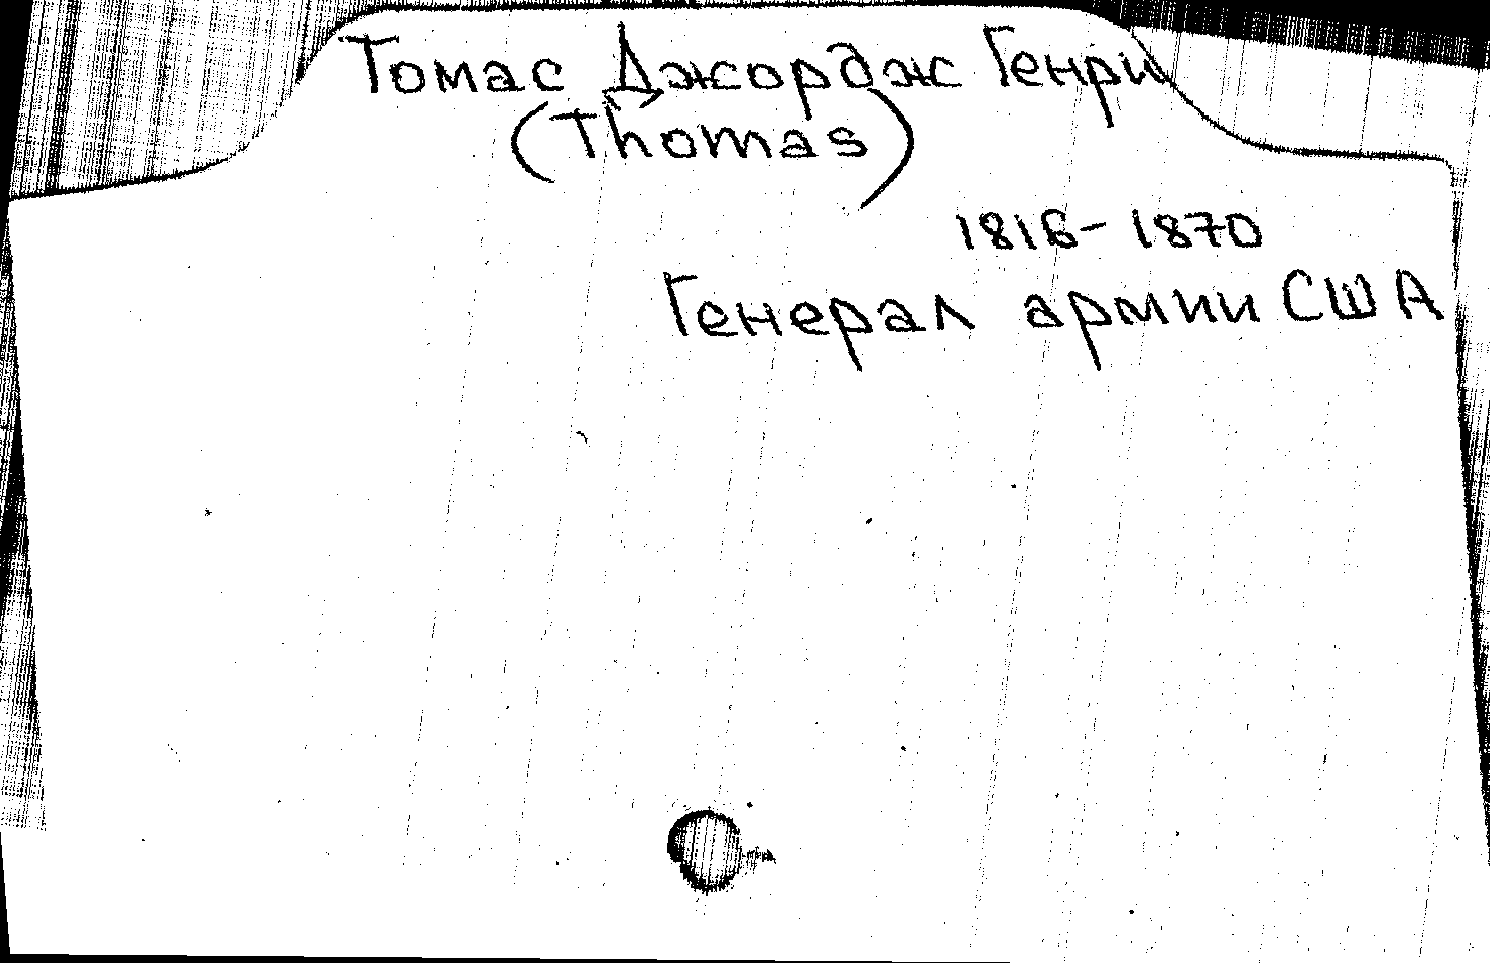 Томас Джордж Генри
(Thomas)
1816-1870
Генерал армии США